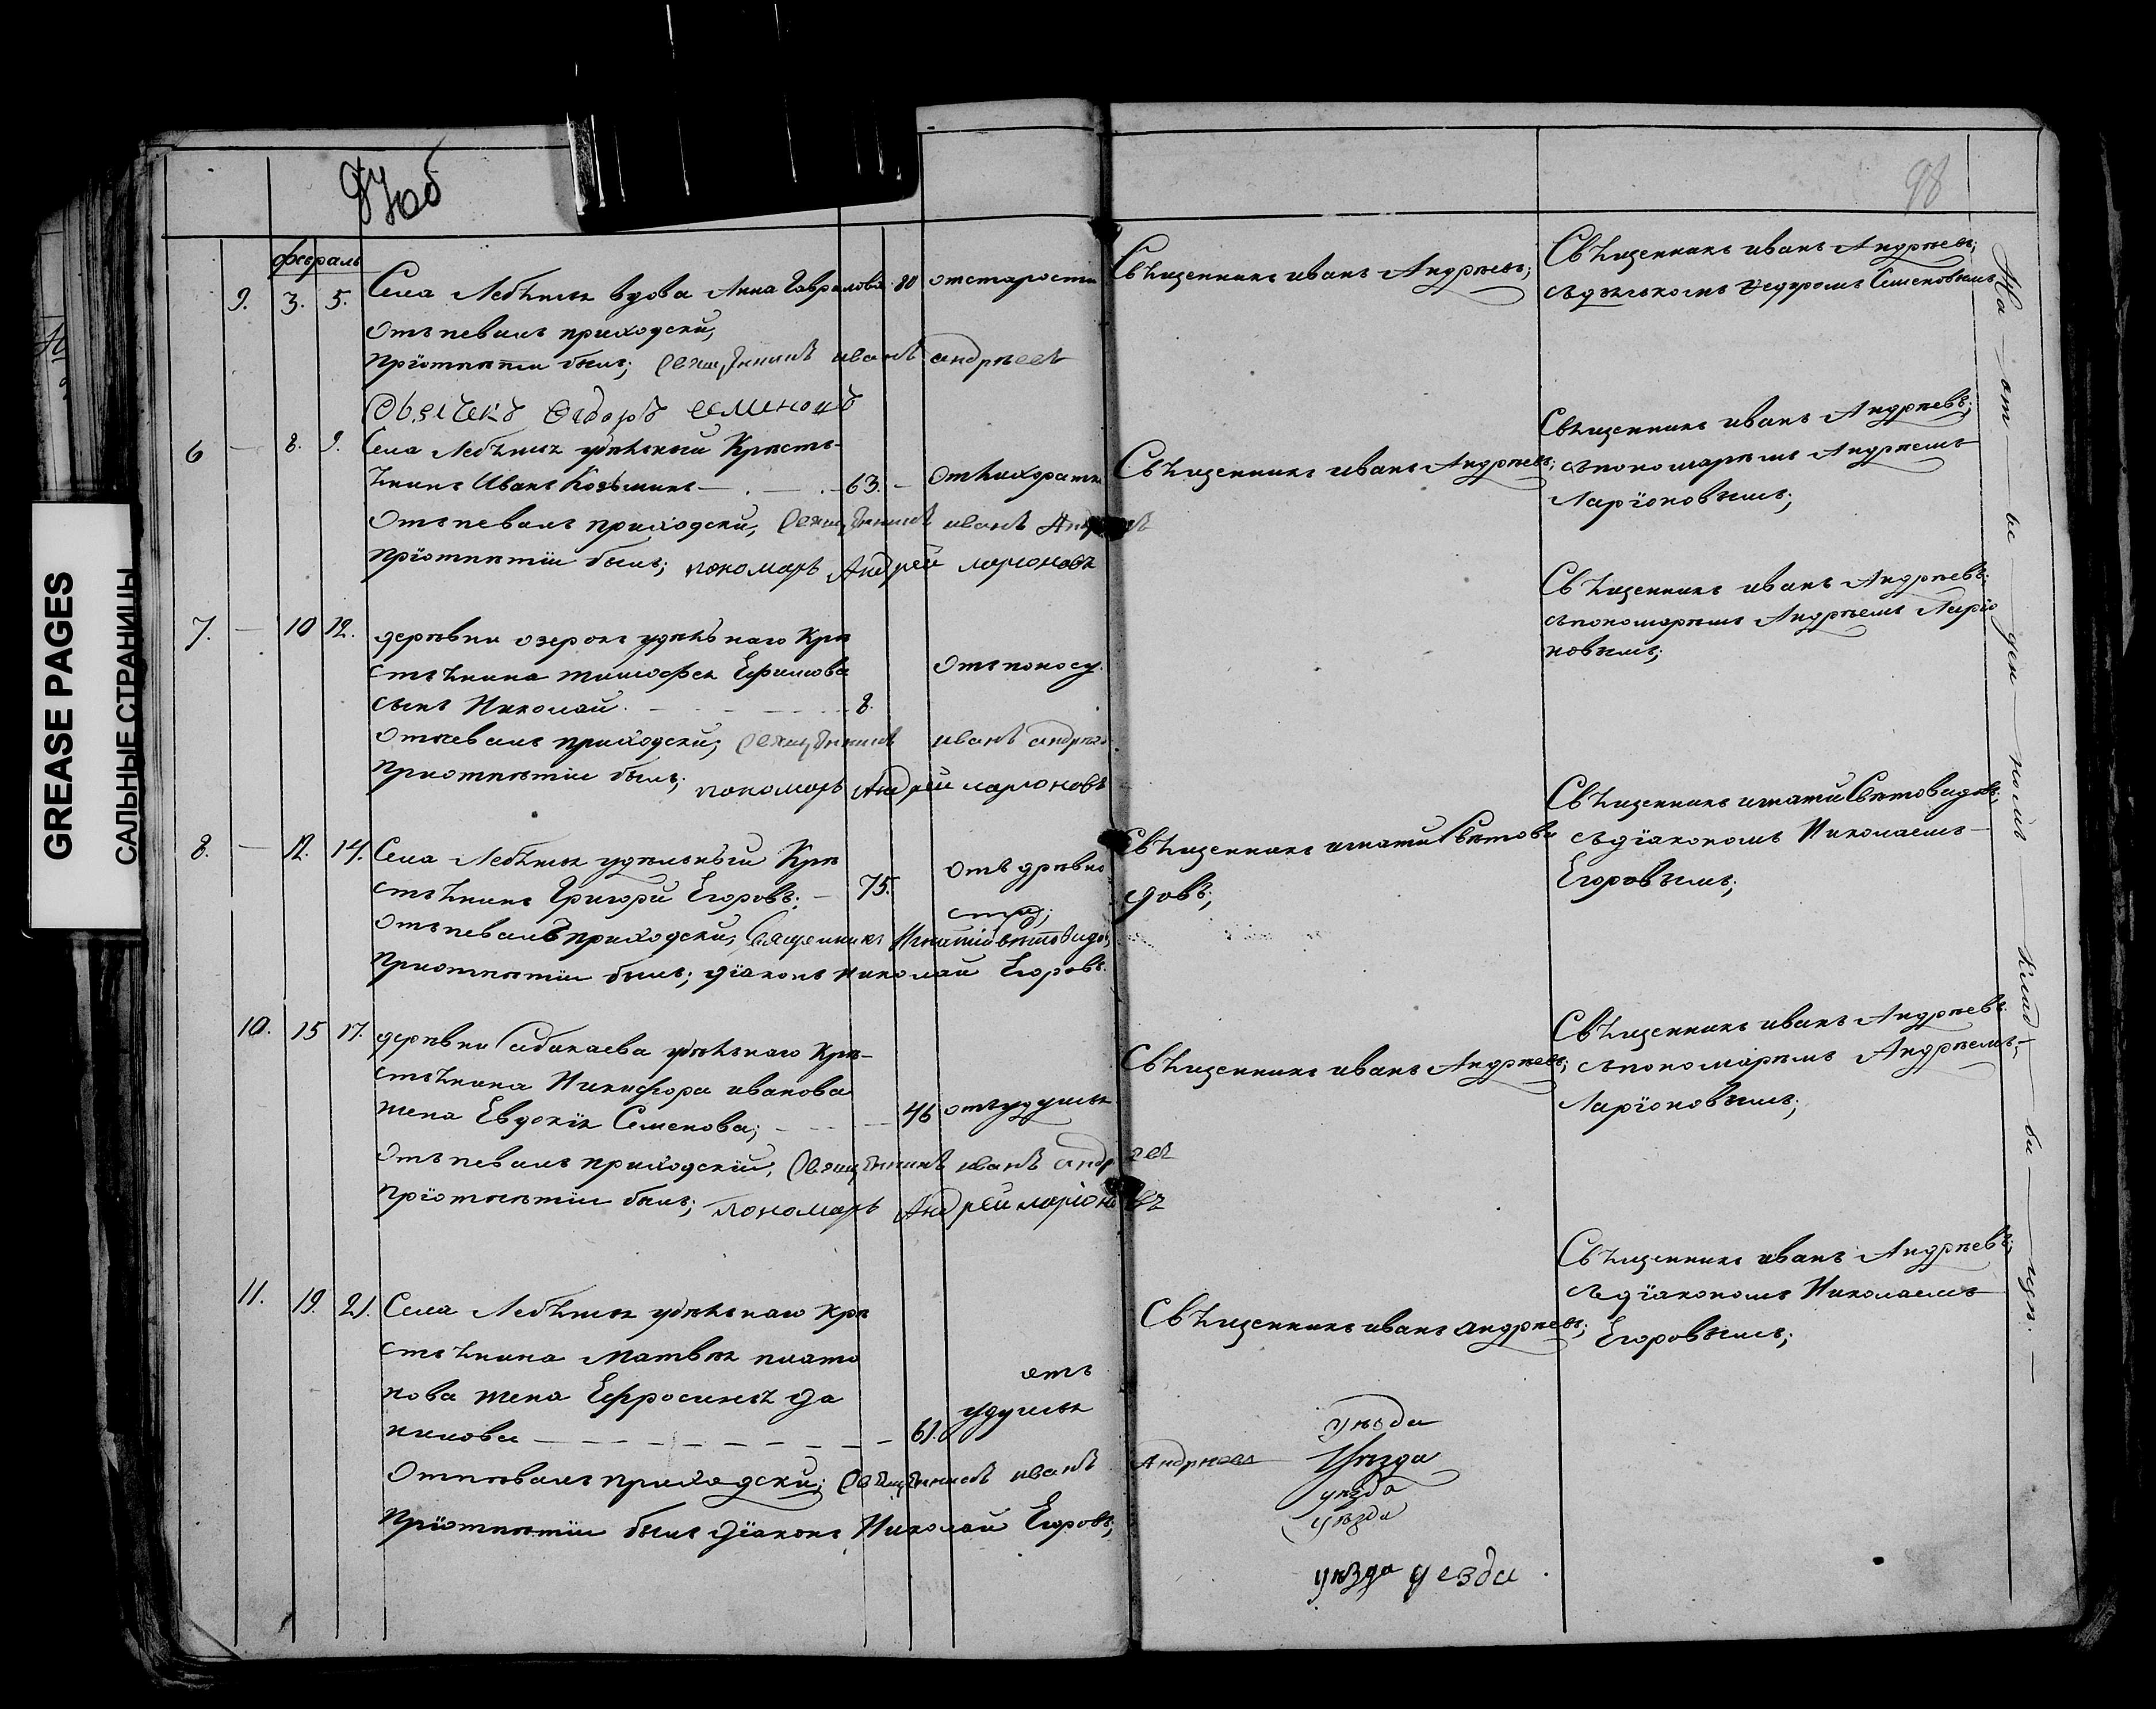 GREASE PAGES
САЛЬНЫЕ СТРАНИЦЫ
97об
98
февраль
9. 3. 5. Села Лебѣжья вдова Анна Гаврилова 80 отстарости
Отъпевалъ приходскій,
Приотпѣтіи былъ; священникъ иванъ андреевъ
дьячекъ Федоръ семеновъ
Свѧщенникъ иванъ Андрѣевъ;
Свѧщенникъ иванъ Андрѣевъ;
съдьячкомъ Федоромъ Семеновымъ
6 — 8. 9. Села Лебѣжья удѣльный Кресть-
ѧнинъ Иванъ Козьминъ — 63. —
Отъпевалъ приходскій, священникъ иванъ Андреевъ
Приотпѣтіи былъ; пономарь Андрей ларионовъ
Свѧщенникъ иванъ Андрѣевъ;
Свѧщенникъ иванъ Андрѣевъ;
съпономаремъ Андрѣемъ
Ларіоновымъ;
7. — 10 12. деревни озерокъ удѣльнаго Кре
стьѧнина тимофея Ефимова Отъпоносу.
сынъ Николай. 8.
Отпевалъ приходскій; священникъ иванъ андреевъ
Приотпѣтіи былъ; пономарь Андрей ларионовъ
Свѧщенникъ иванъ Андрѣевъ;
съпономаремъ Андрѣемъ Ларіо
новымъ;
8. — 12. 14. Села Лебѣжья удѣльный Кре
стьѧнинъ Григорій Егоровъ; — 75. Отъ древно
сти;
Отъпевалъ приходскій, священникъ Игнатій Свѣтовидовъ
Приотпѣтіи былъ; діаконъ николай Егоровъ.
Свѧщенникъ игнатій Свѣтови
довъ;
Свѧщенникъ игнатій Свѣтовидовъ;
съдіакономъ Николаемъ
Егоровымъ;
10. 15 17. деревни Сабакаева удѣльнаго Кре-
стьѧнина Никифора иванова
жена Евдокія Семенова; — 46 отъудушья
Отъпевалъ приходскій, священникъ иванъ андреевъ
Приотпѣтіи былъ; пономарь Андрей ларіоновъ
Свѧщенникъ иванъ Андрѣевъ;
Свѧщенникъ иванъ Андрѣевъ
съпономаремъ Андрѣемъ
Ларіоновымъ;
11. 19. 21. Села Лебѣжья удѣльнаго кре
стьѧнина Матвѣя плато
нова жена Ефросинья Да
нилова — 61. отъ
удушья
Отпѣвалъ приходскій; священникъ иванъ Андреевъ
Приотпѣтіи былъ діаконъ Николай Егоровъ;
Свѧщенникъ иванъ андрѣевъ;
Свѧщенникъ иванъ Андрѣевъ;
съдіакономъ Николаемъ
Егоровымъ;
уѣзда
Уѣзда
уѣзда
уѣзда
уѣзда уезда
На — от — ве — ден — номъ — клад — би — щѣ. —